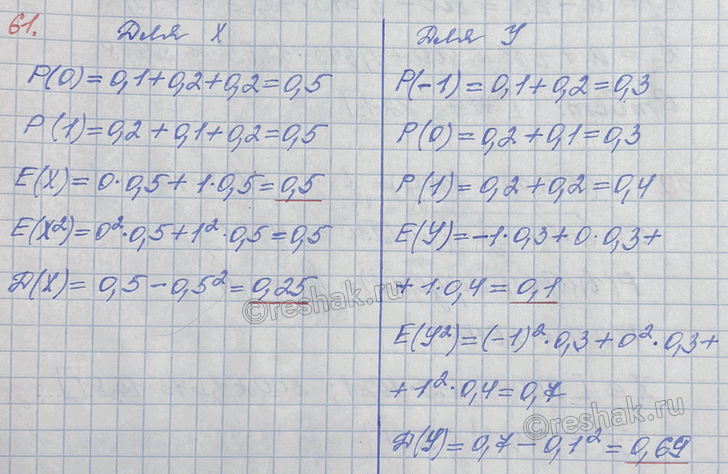 61.
Для X
P(0)=0,1+0,2+0,2=0,5
P(1)=0,2+0,1+0,2=0,5
E(X)=0·0,5+1·0,5=0,5
E(X²)=0²·0,5+1²·0,5=0,5
D(X)=0,5-0,5²=0,25
Для Y
P(-1)=0,1+0,2=0,3
P(0)=0,2+0,1=0,3
P(1)=0,2+0,2=0,4
E(Y)=-1·0,3+0·0,3+
+1·0,4=0,1
E(Y²)=(-1)²·0,3+0²·0,3+
+1²·0,4=0,7
D(Y)=0,7-0,1²=0,69
©reshak.ru
©reshak.ru